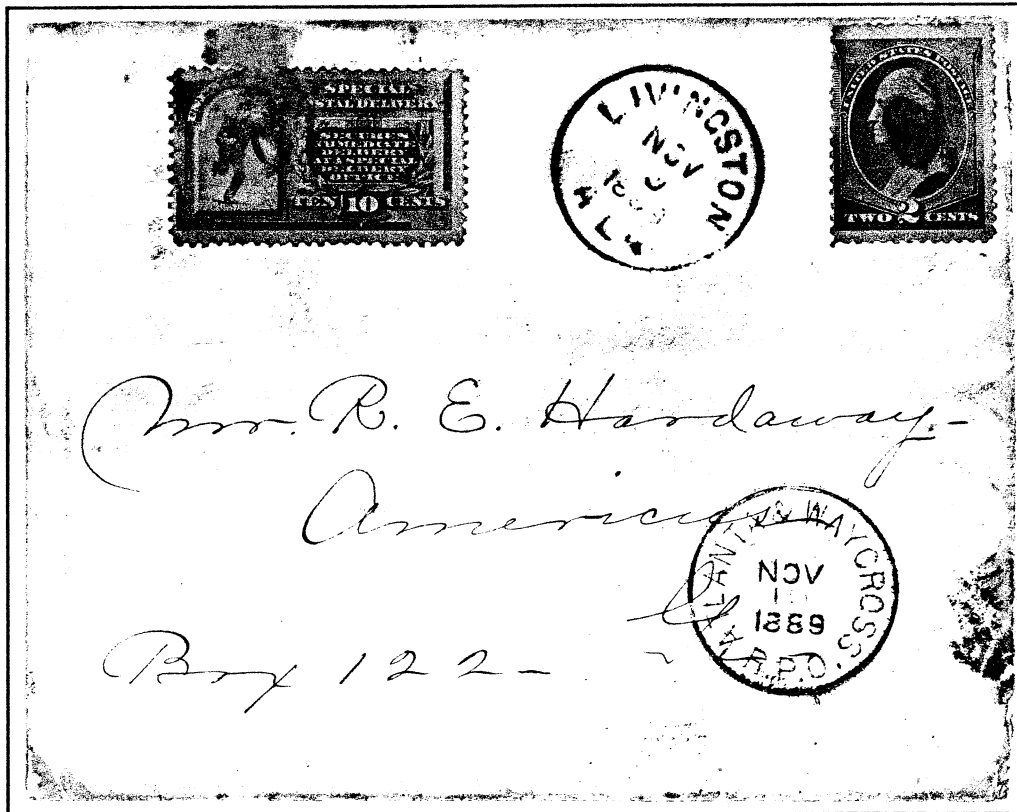 SPECIAL
POSTAL DELIVERY
SECURES
IMMEDIATE
DELIVERY
AT A SPECIAL
DELIVERY
OFFICE
TEN 10 CENTS
LIVINGSTON
NOV
ALA
UNITED STATES POSTAGE
TWO 2 CENTS
Mr. R. E. Hardaway.-
Americus
Ga
Box 122-
ATLANTA & WAYCROSS
NOV
1889
R.P.O.